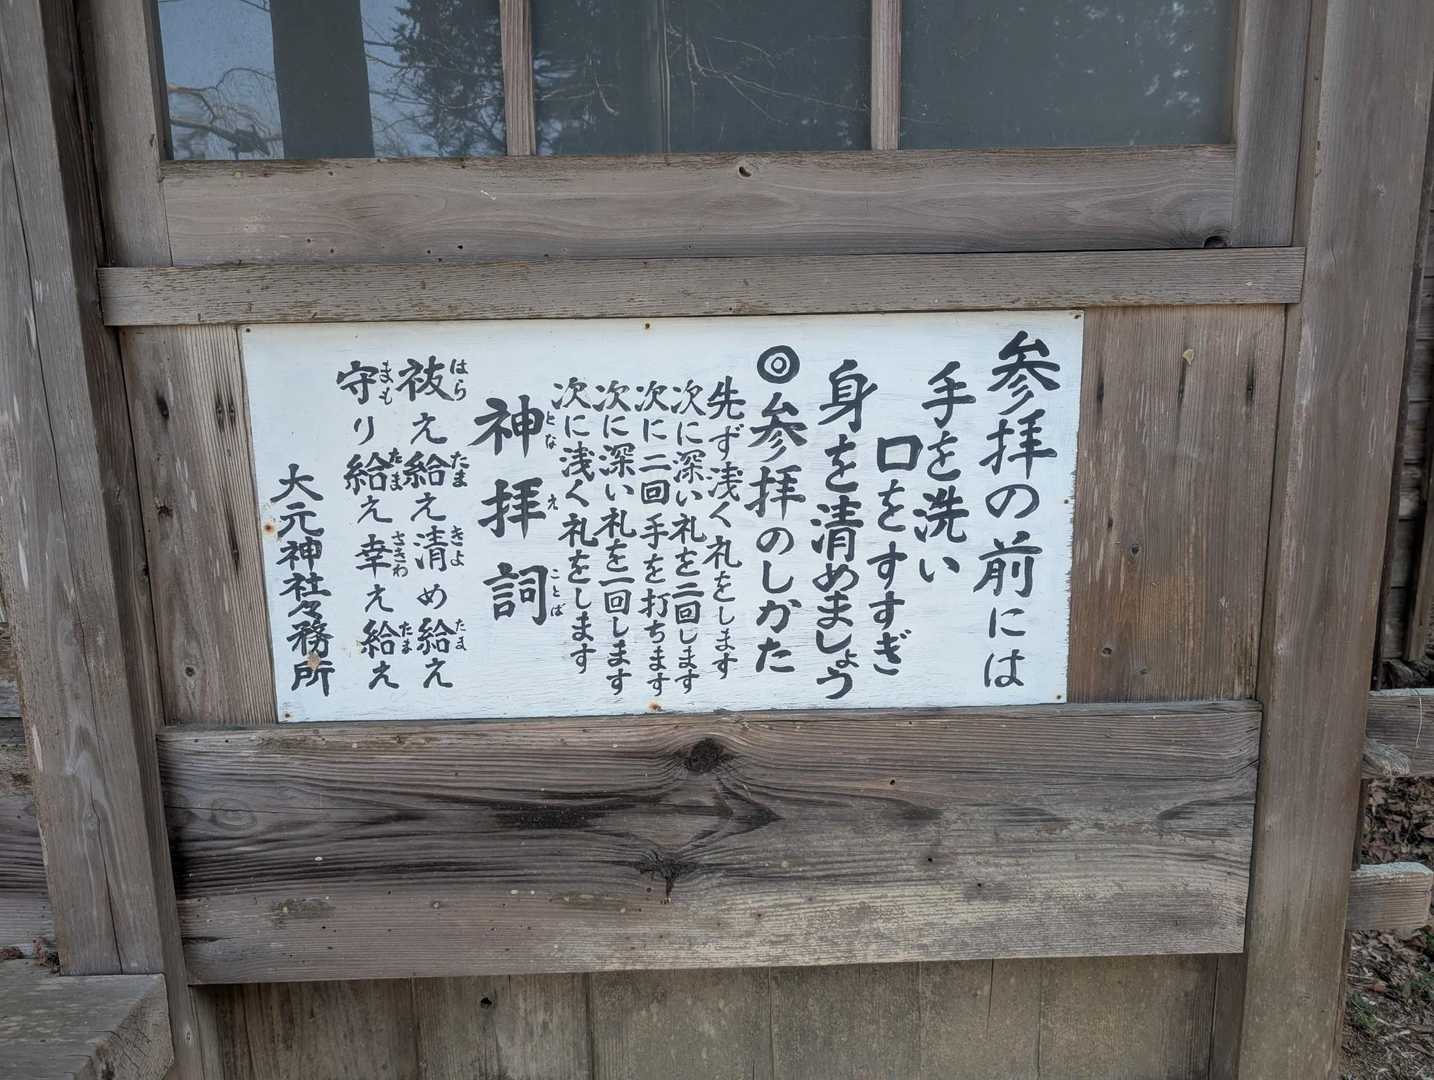 参拝の前には
手を洗い
口をすすぎ
身を清めましょう
◎参拝のしかた
先ず浅く礼をします
次に深い礼を二回します
次に二回手を打ちます
次に深い礼を一回します
次に浅く礼をします
神拝詞
となえことば
祓え給え清め給え
はらたまきよたま
守り給え幸え給え
まもたまさきわたま
大元神社々務所